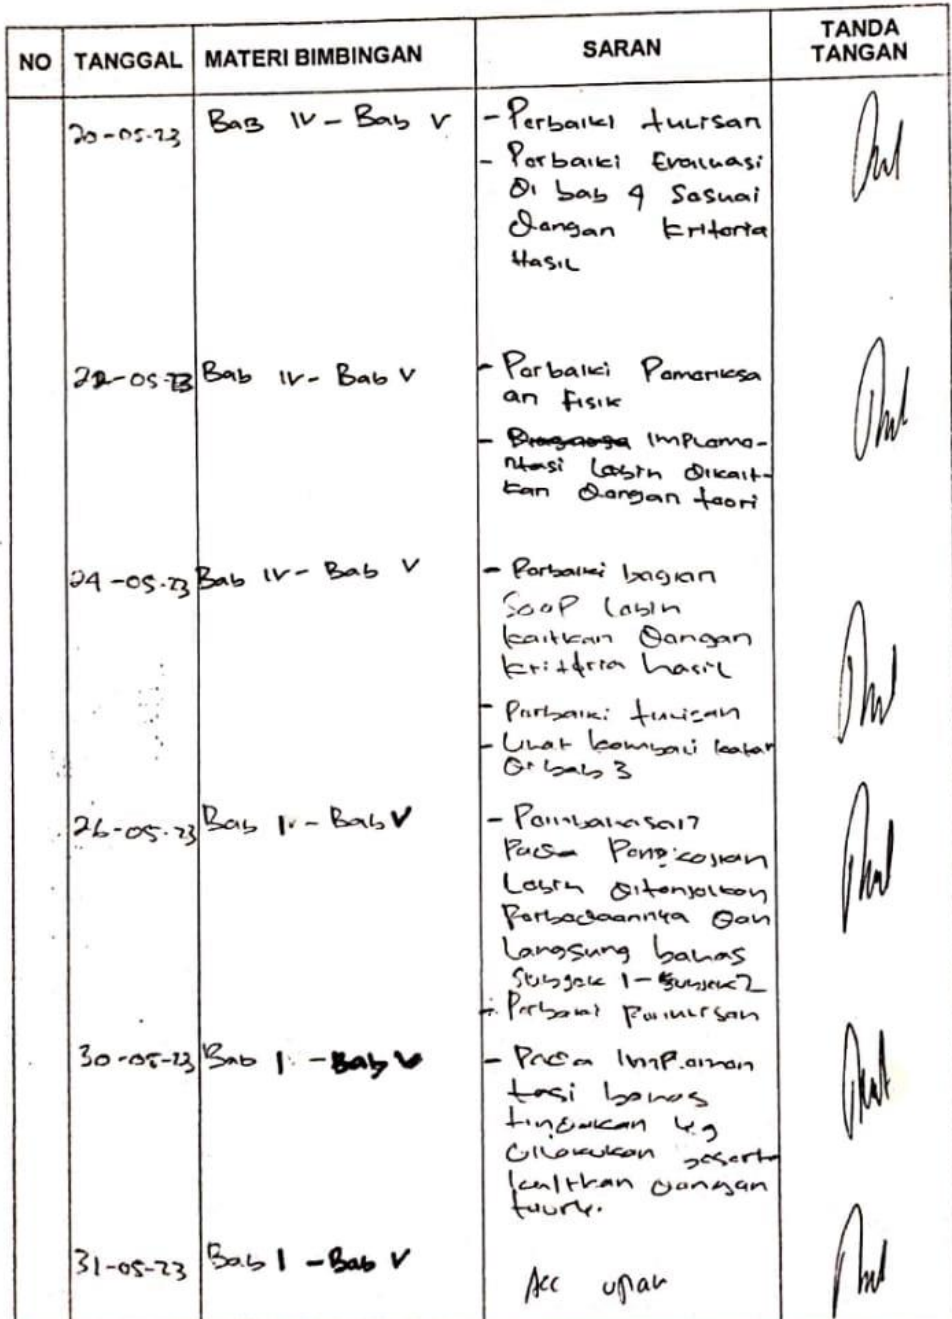 NO TANGGAL MATERI BIMBINGAN SARAN TANDA TANGAN
20-05-23 Bab IV - Bab V - Perbaiki tulisan
- Perbaiki Evaluasi
Di bab 4 Sesuai
Dengan Kriteria
Hasil
22-05-23 Bab IV - Bab V - Perbaiki Pemeriksa
an Fisik
- Impleme-
ntasi Lebih Dikait-
kan Dengan teori
24-05-23 Bab IV - Bab V - Perbaiki bagian
SOAP Lebih
kaitkan Dengan
kriteria hasil
- Perbaiki tulisan
- Lihat kembali
Di bab 3
26-05-23 Bab I - Bab V - Pembahasan
Pada Pengkajian
Lebih Ditonjolkan
Perbedaannya Dan
Langsung bahas
Subjek 1 - Subjek 2
- Perbaiki Penulisan
30-05-23 Bab I - Bab V - Pada Implemen
tasi bahas
tindakan yg
Dilakukan beserta
kaitkan Dengan
31-05-23 Bab I - Bab V Acc